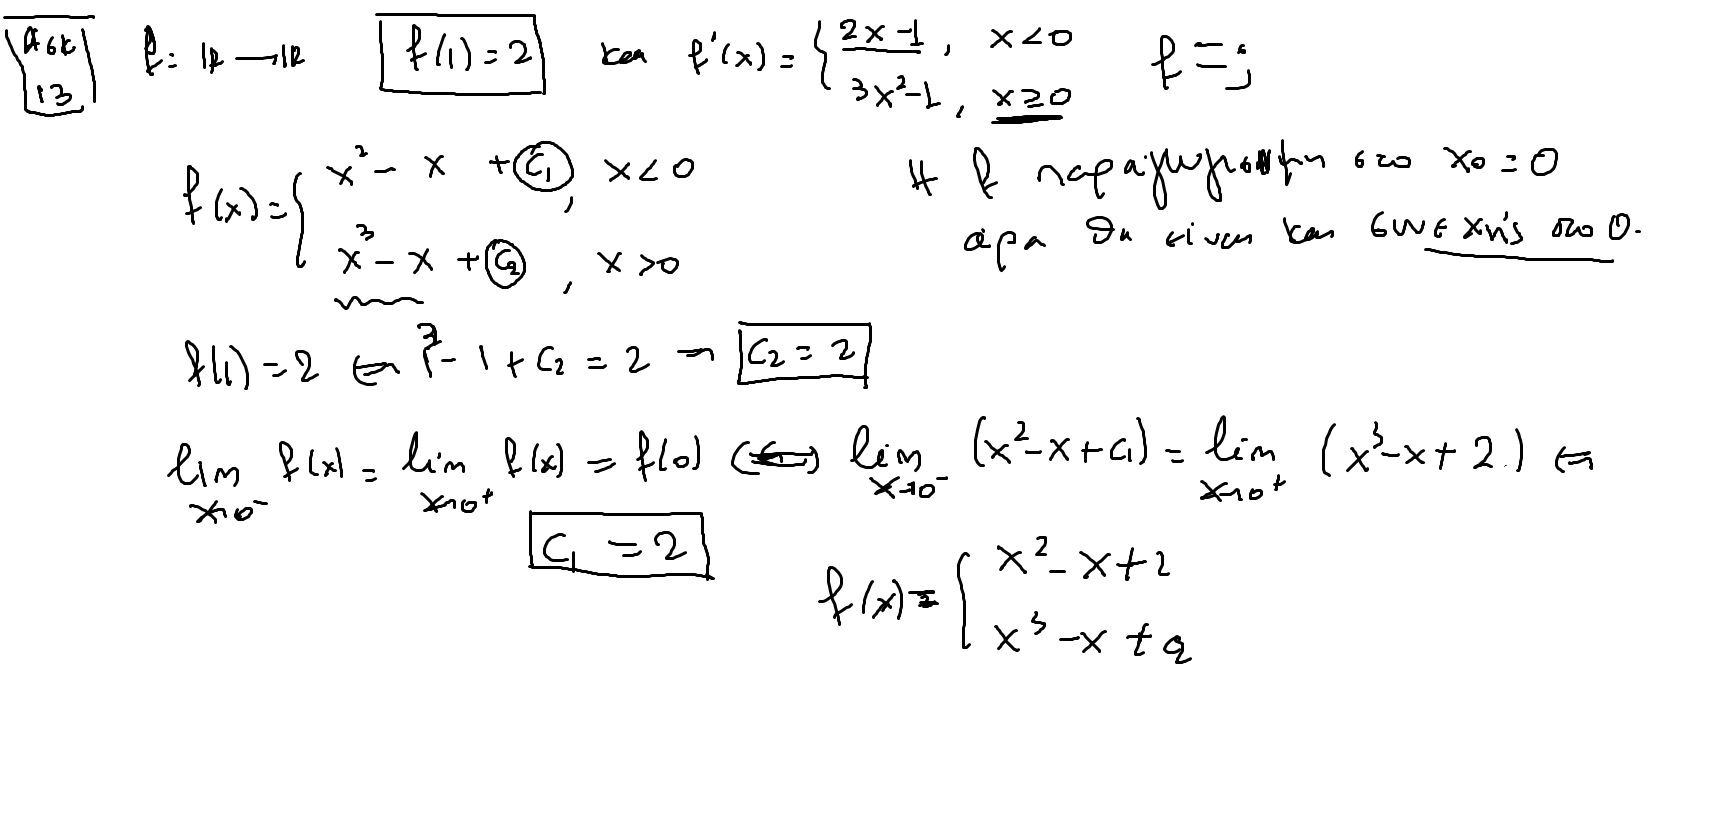 Ασκ 13 f: ℝ → ℝ f(1) = 2 και f'(x) = { 2x-1, x<0
3x²-1, x≥0 f = ;
f(x) = { x² - x + c₁, x<0
x³ - x + c₂, x>0
Η f παραγωγίσιμη στο x₀ = 0
άρα θα είναι και συνεχής στο 0.
f(1) = 2 ⇔ 1³ - 1 + c₂ = 2 → c₂ = 2
lim x→0⁻ f(x) = lim x→0⁺ f(x) = f(0) ⇔ lim x→0⁻ (x²-x+c₁) = lim x→0⁺ (x³-x+2) ⇔
c₁ = 2
f(x) = { x² - x + 2
x³ - x + 2